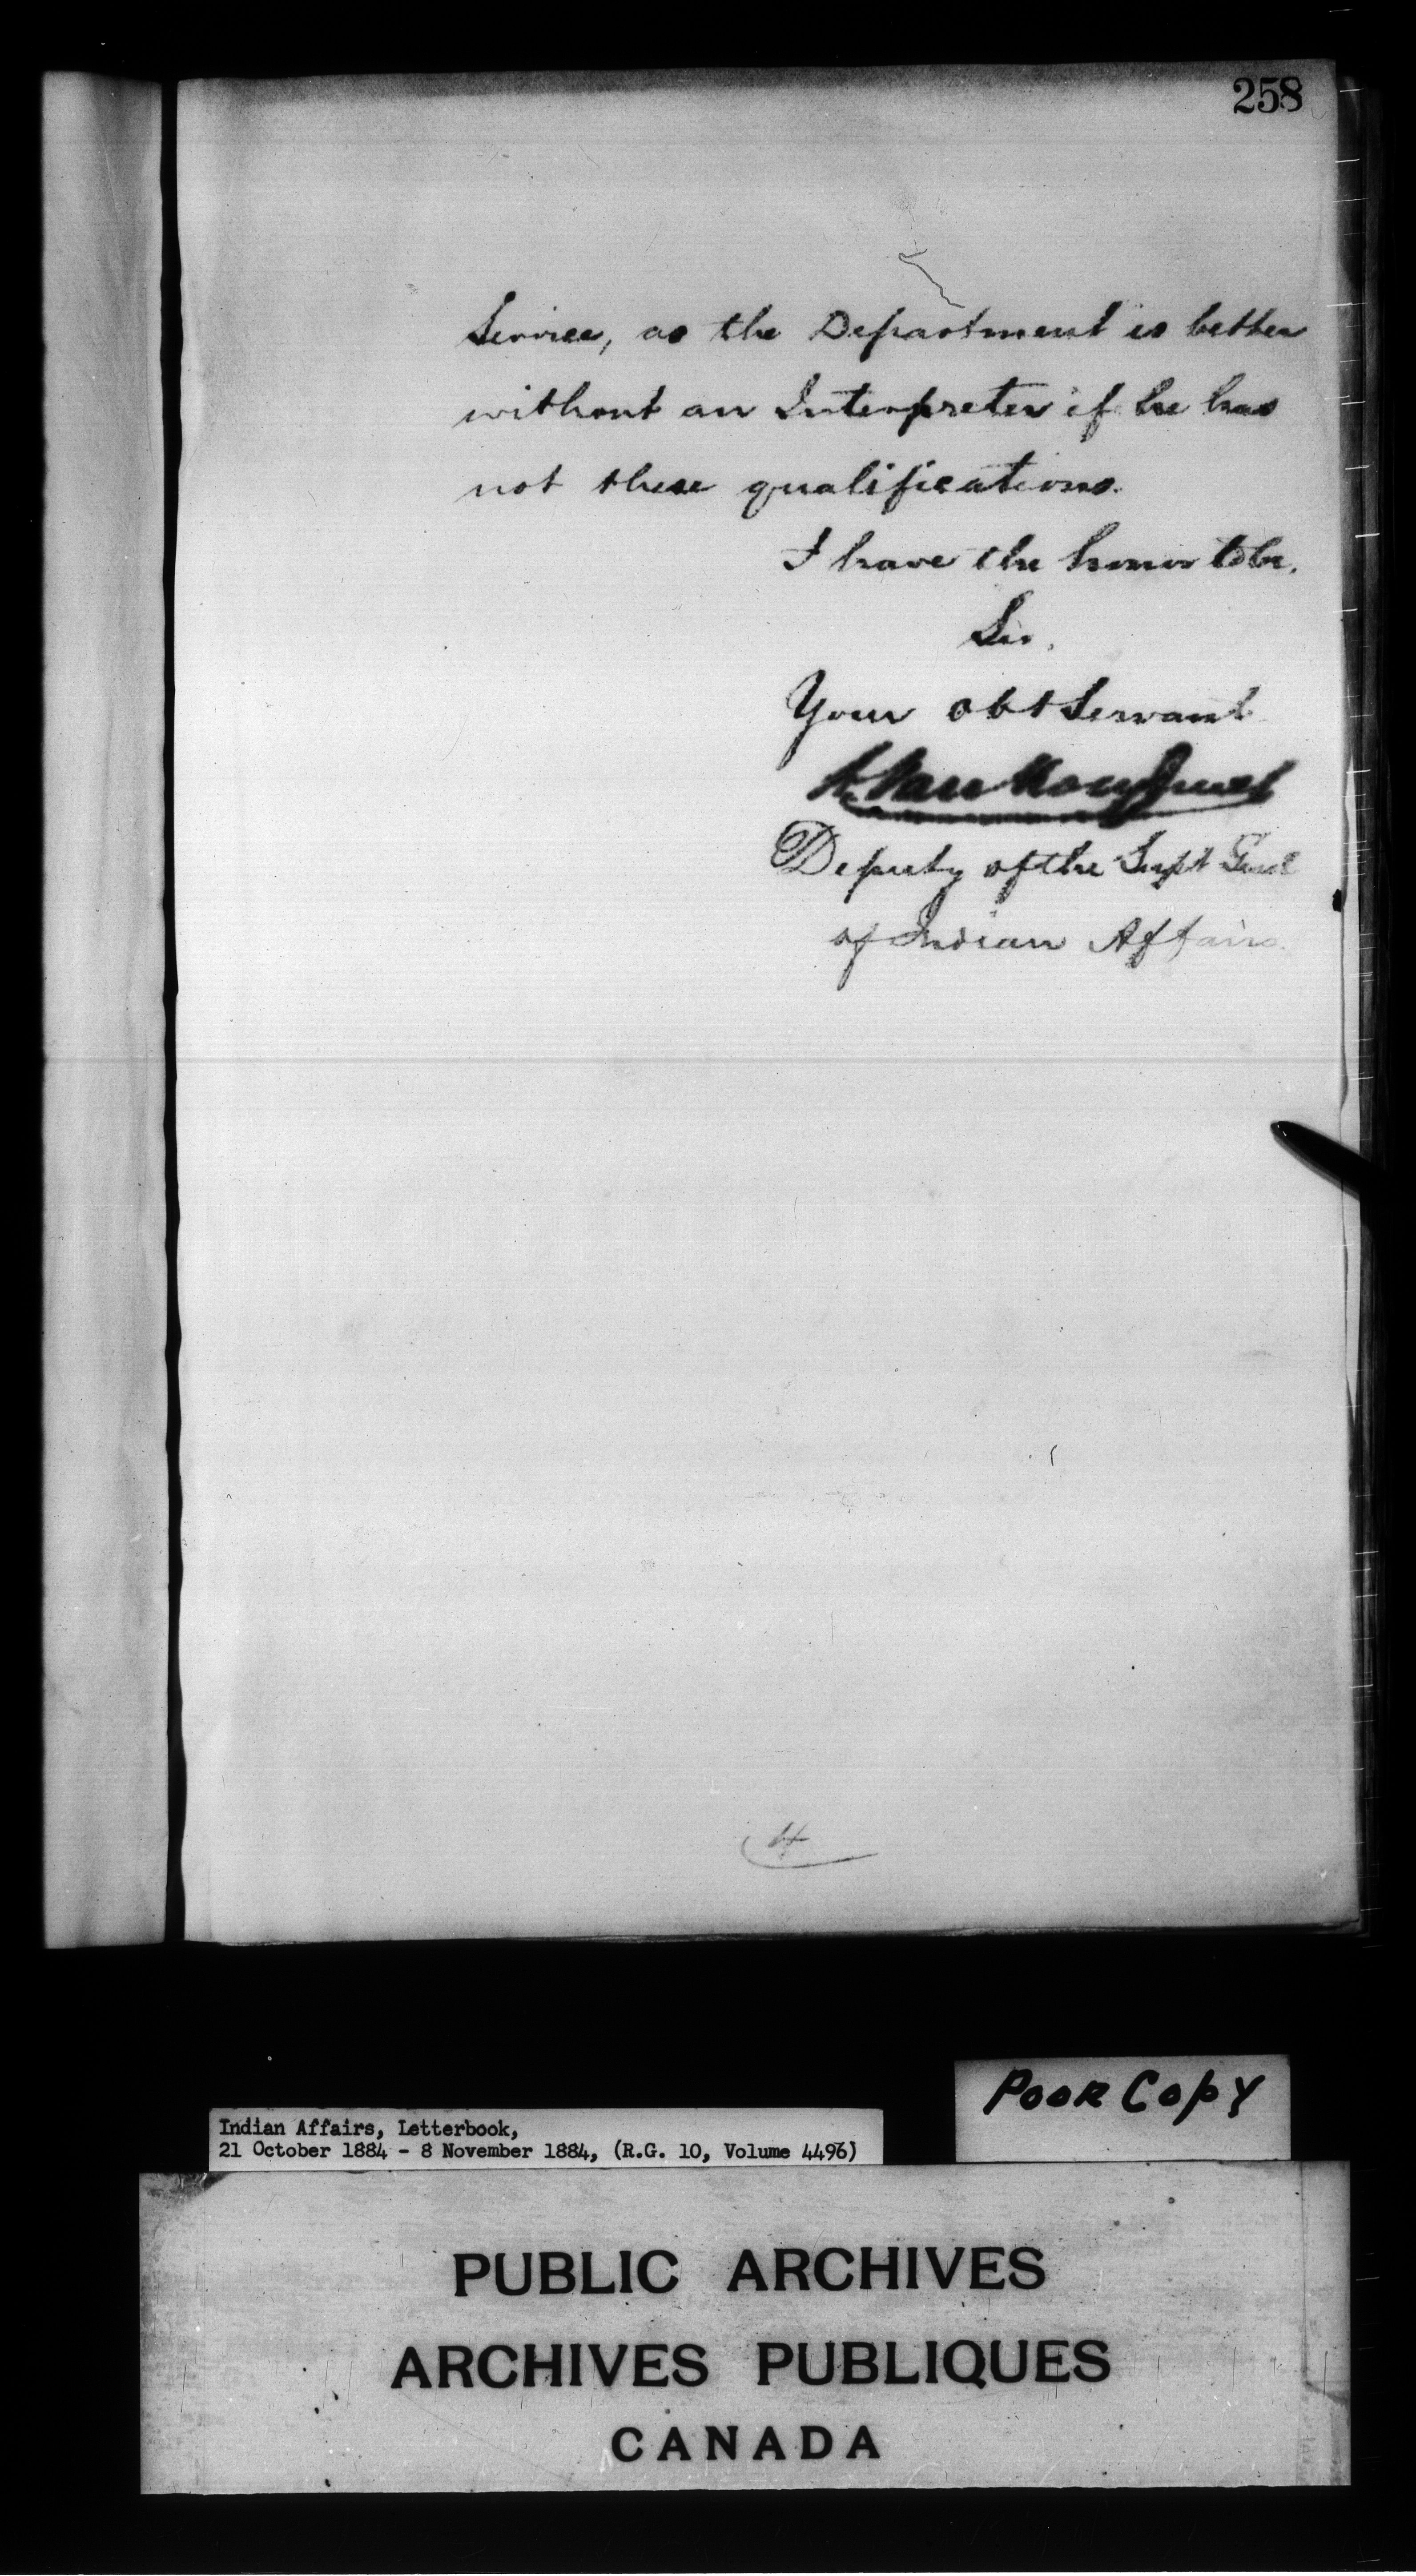 258
Service, as the Department is better
without an Interpreter if he has
not these qualifications.
I have the honor to be,
Sir,
Your obt Servant
L. Vankoughnet
Deputy of the Supt Genl
of Indian Affairs.
4
POOR COPY
Indian Affairs, Letterbook,
21 October 1884 - 8 November 1884, (R.G. 10, Volume 4496)
PUBLIC ARCHIVES
ARCHIVES PUBLIQUES
CANADA